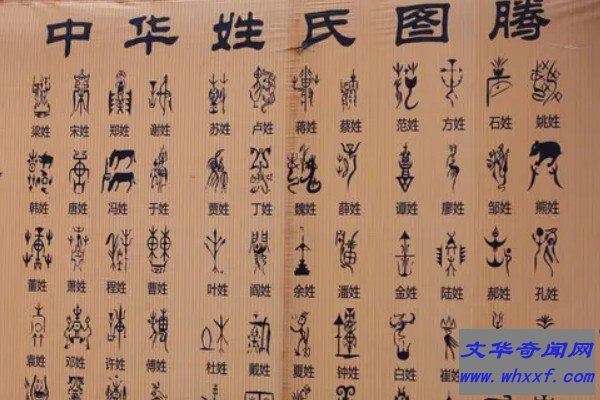 中华姓氏图腾
梁姓 宋姓 郑姓 谢姓 苏姓 卢姓 蒋姓 蔡姓 范姓 方姓 石姓 姚姓
韩姓 唐姓 冯姓 于姓 贾姓 丁姓 魏姓 薛姓 谭姓 廖姓 邹姓 熊姓
董姓 萧姓 程姓 曹姓 叶姓 阎姓 余姓 潘姓 金姓 陆姓 郝姓 孔姓
袁姓 邓姓 许姓 傅姓 杜姓 戴姓 夏姓 钟姓 白姓 崔姓
文华奇闻网
www.whxxf.com